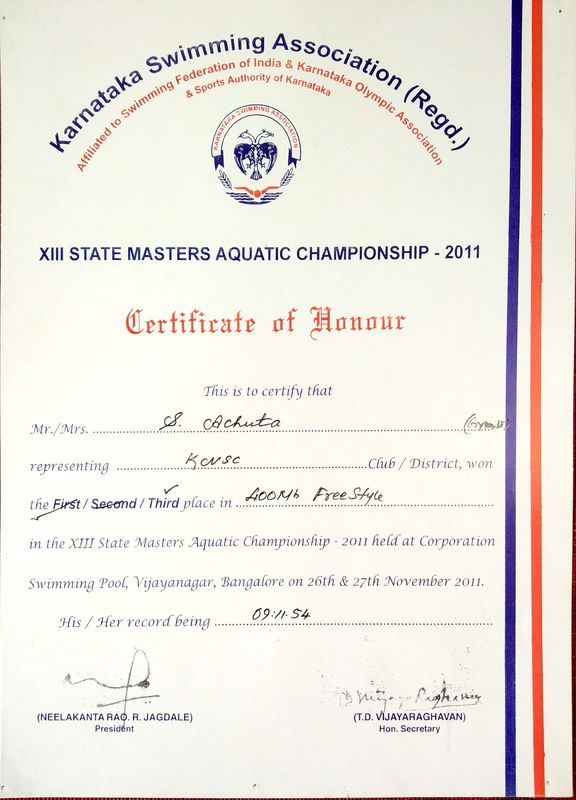 Karnataka Swimming Association (Regd.)
Affiliated to Swimming Federation of India & Karnataka Olympic Association
& Sports Authority of Karnataka
KARNATAKA SWIMMING ASSOCIATION
XIII STATE MASTERS AQUATIC CHAMPIONSHIP - 2011
Certificate of Honour
This is to certify that
Mr./Mrs. S. Achuta
representing KCNSC Club / District, won
the First / Second / Third place in 400Mts FreeStyle
in the XIII State Masters Aquatic Championship - 2011 held at Corporation
Swimming Pool, Vijayanagar, Bangalore on 26th & 27th November 2011.
His / Her record being 09:11.54
(NEELAKANTA RAO. R. JAGDALE) (T.D. VIJAYARAGHAVAN)
President Hon. Secretary